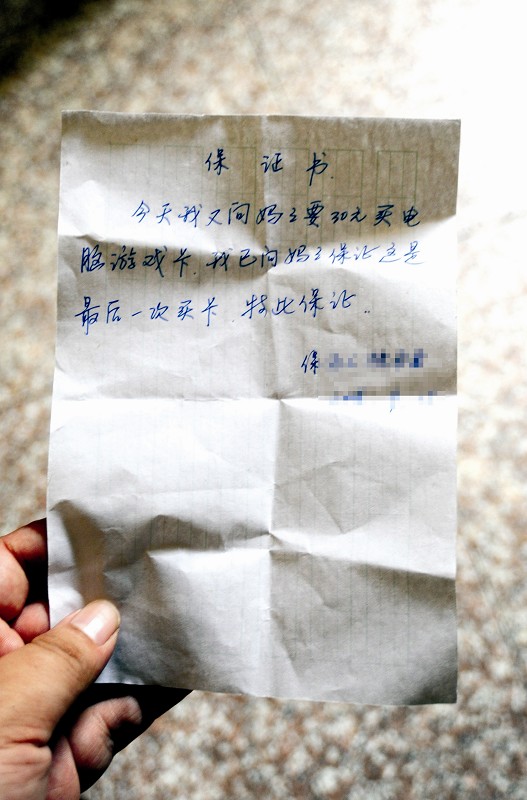 保 证 书
今天我又问妈々要30元买电
脑游戏卡.我已向妈々保证这是
最后一次买卡.特此保证.
保